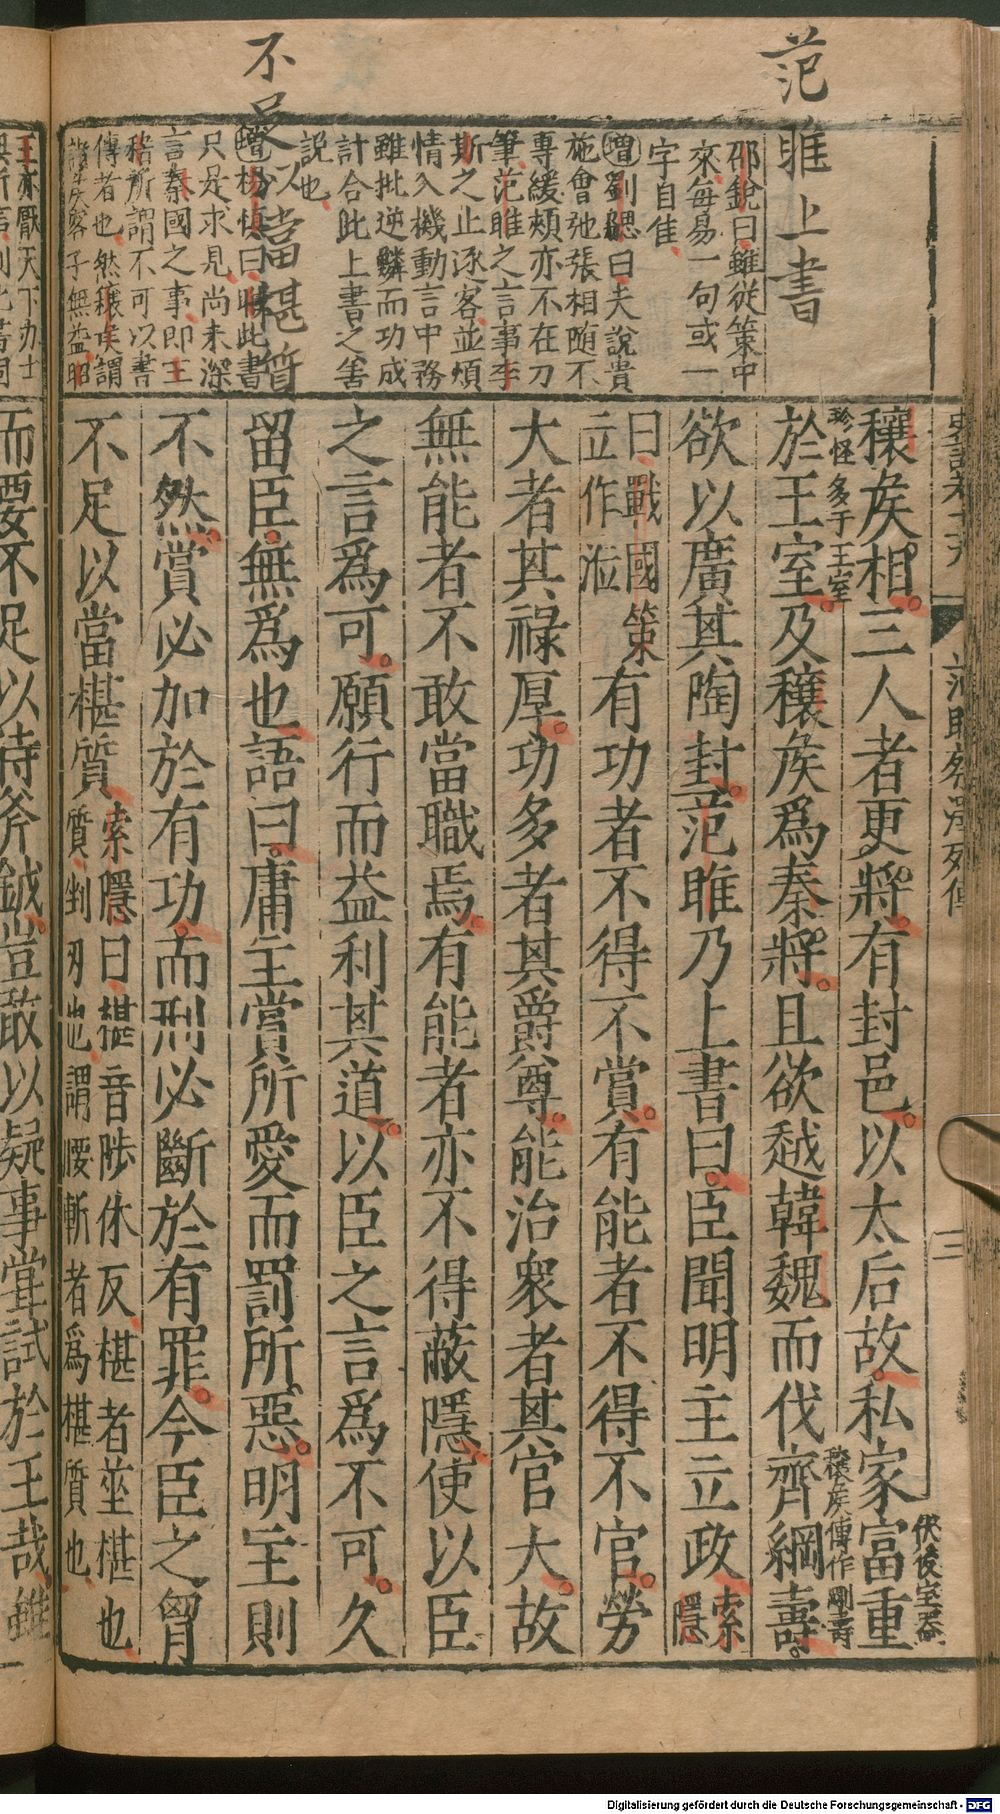 范雎上書
不足以當椹質
邵銳曰雖從策中
來每易一句或一
字自佳
增劉勰曰夫說貴
施會弛張相随不
專緩頰亦不在刀
筆范雎之言事李
斯之止逐客並煩
情入機動言中務
雖批逆鱗而功成
計合此上書之善
說也
增楊慎曰此書
只是求見尚未深
言秦國之事即王
稽所謂不可以書
傳者也然穰侯謂
諸侯客子無益
穰侯相三人者更將有封邑以太后故私家富重
於王室及穰侯爲秦將且欲越韓魏而伐齊綱壽
欲以廣其陶封范雎乃上書曰臣聞明主立政索隱
曰戰國策立作涖有功者不得不賞有能者不得不官勞
大者其祿厚功多者其爵尊能治衆者其官大故
無能者不敢當職焉有能者亦不得蔽隱使以臣
之言爲可願行而益利其道以臣之言爲不可久
留臣無爲也語曰庸主賞所愛而罰所惡明主則
不然賞必加於有功而刑必斷於有罪今臣之胷
不足以當椹質索隱曰椹音陟休反椹者莝椹也
質剉刃也謂腰斬者爲椹質也
而要不足以待斧鉞豈敢以疑事嘗試於王哉雖
珍怪多于王室
穰侯傳作剛壽
王亦厭天下办士
范睢蔡澤列傳
三
Digitalisierung gefördert durch die Deutsche Forschungsgemeinschaft - DFG